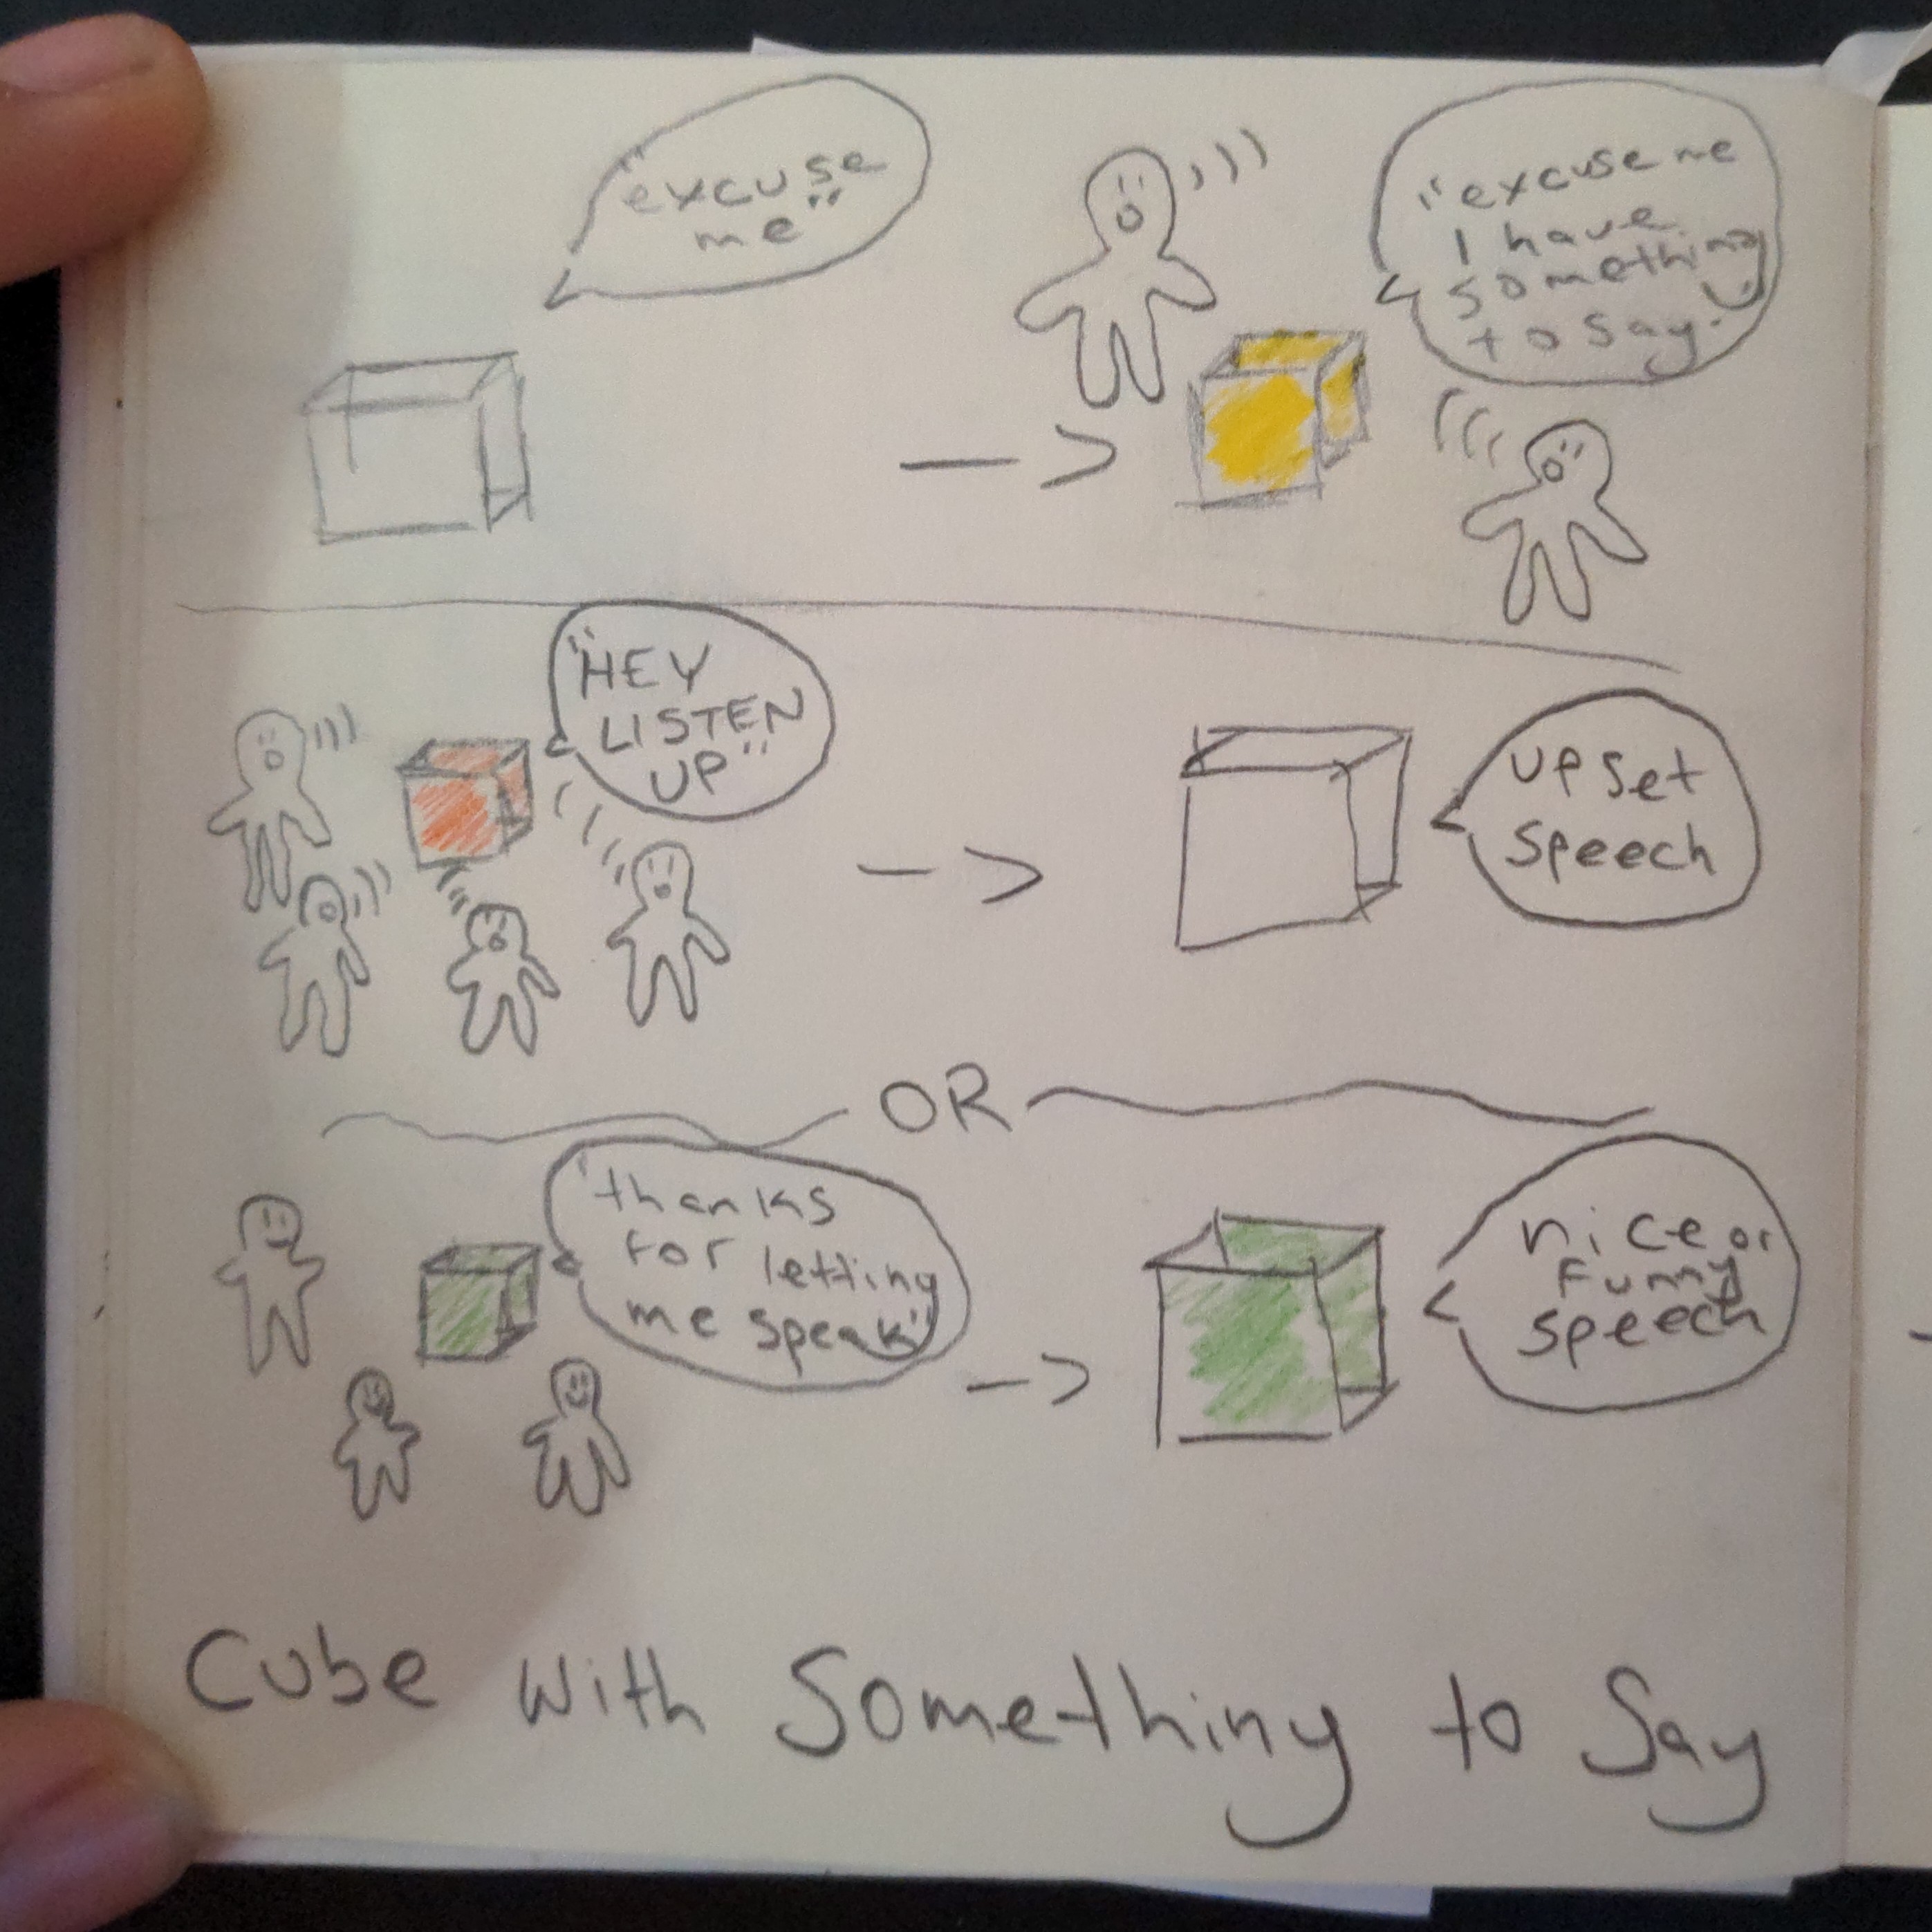 "excuse
me"
"excuse me
I have
something
to say."
"HEY
LISTEN
UP"
upset
speech
OR
"thanks
for letting
me speak"
nice or
funny
speech
Cube with Something to Say